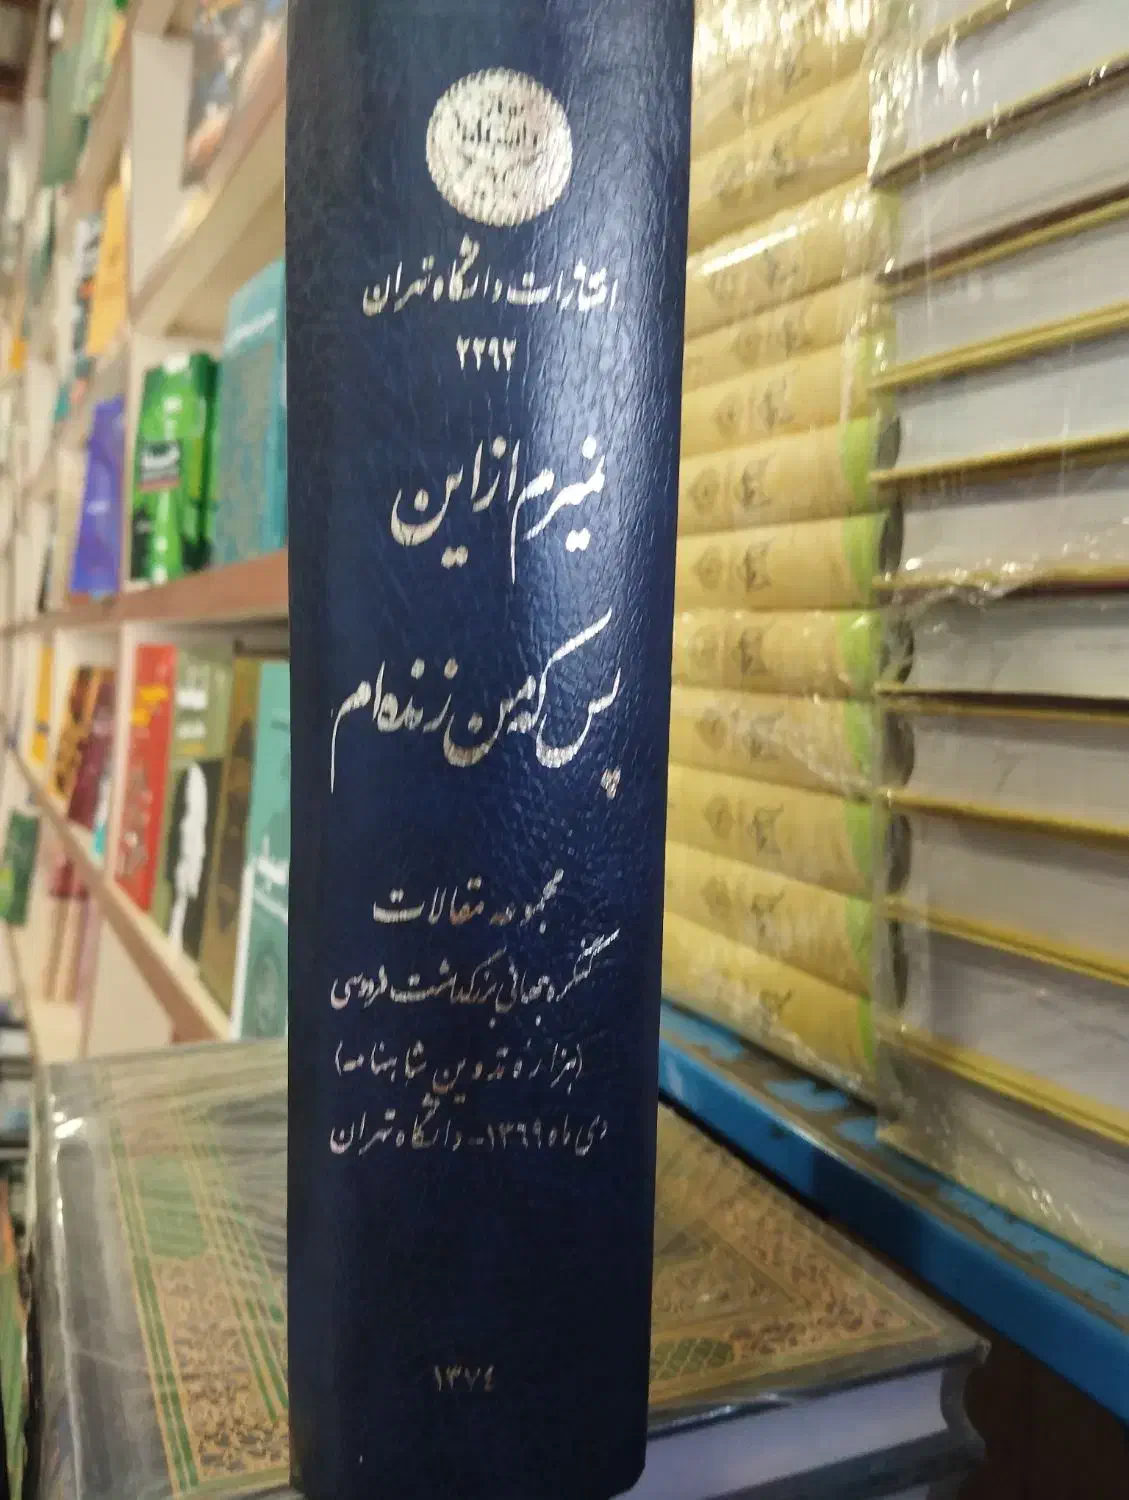 انتشارات دانشگاه تهران
۲۲۹۲
نمیرم از این
پس که من زنده‌ام
مجموعه مقالات
کنگره جهانی بزرگداشت فردوسی
(هزارهٔ تدوین شاهنامه)
دی ماه ۱۳۶۹ - دانشگاه تهران
۱۳۷۴